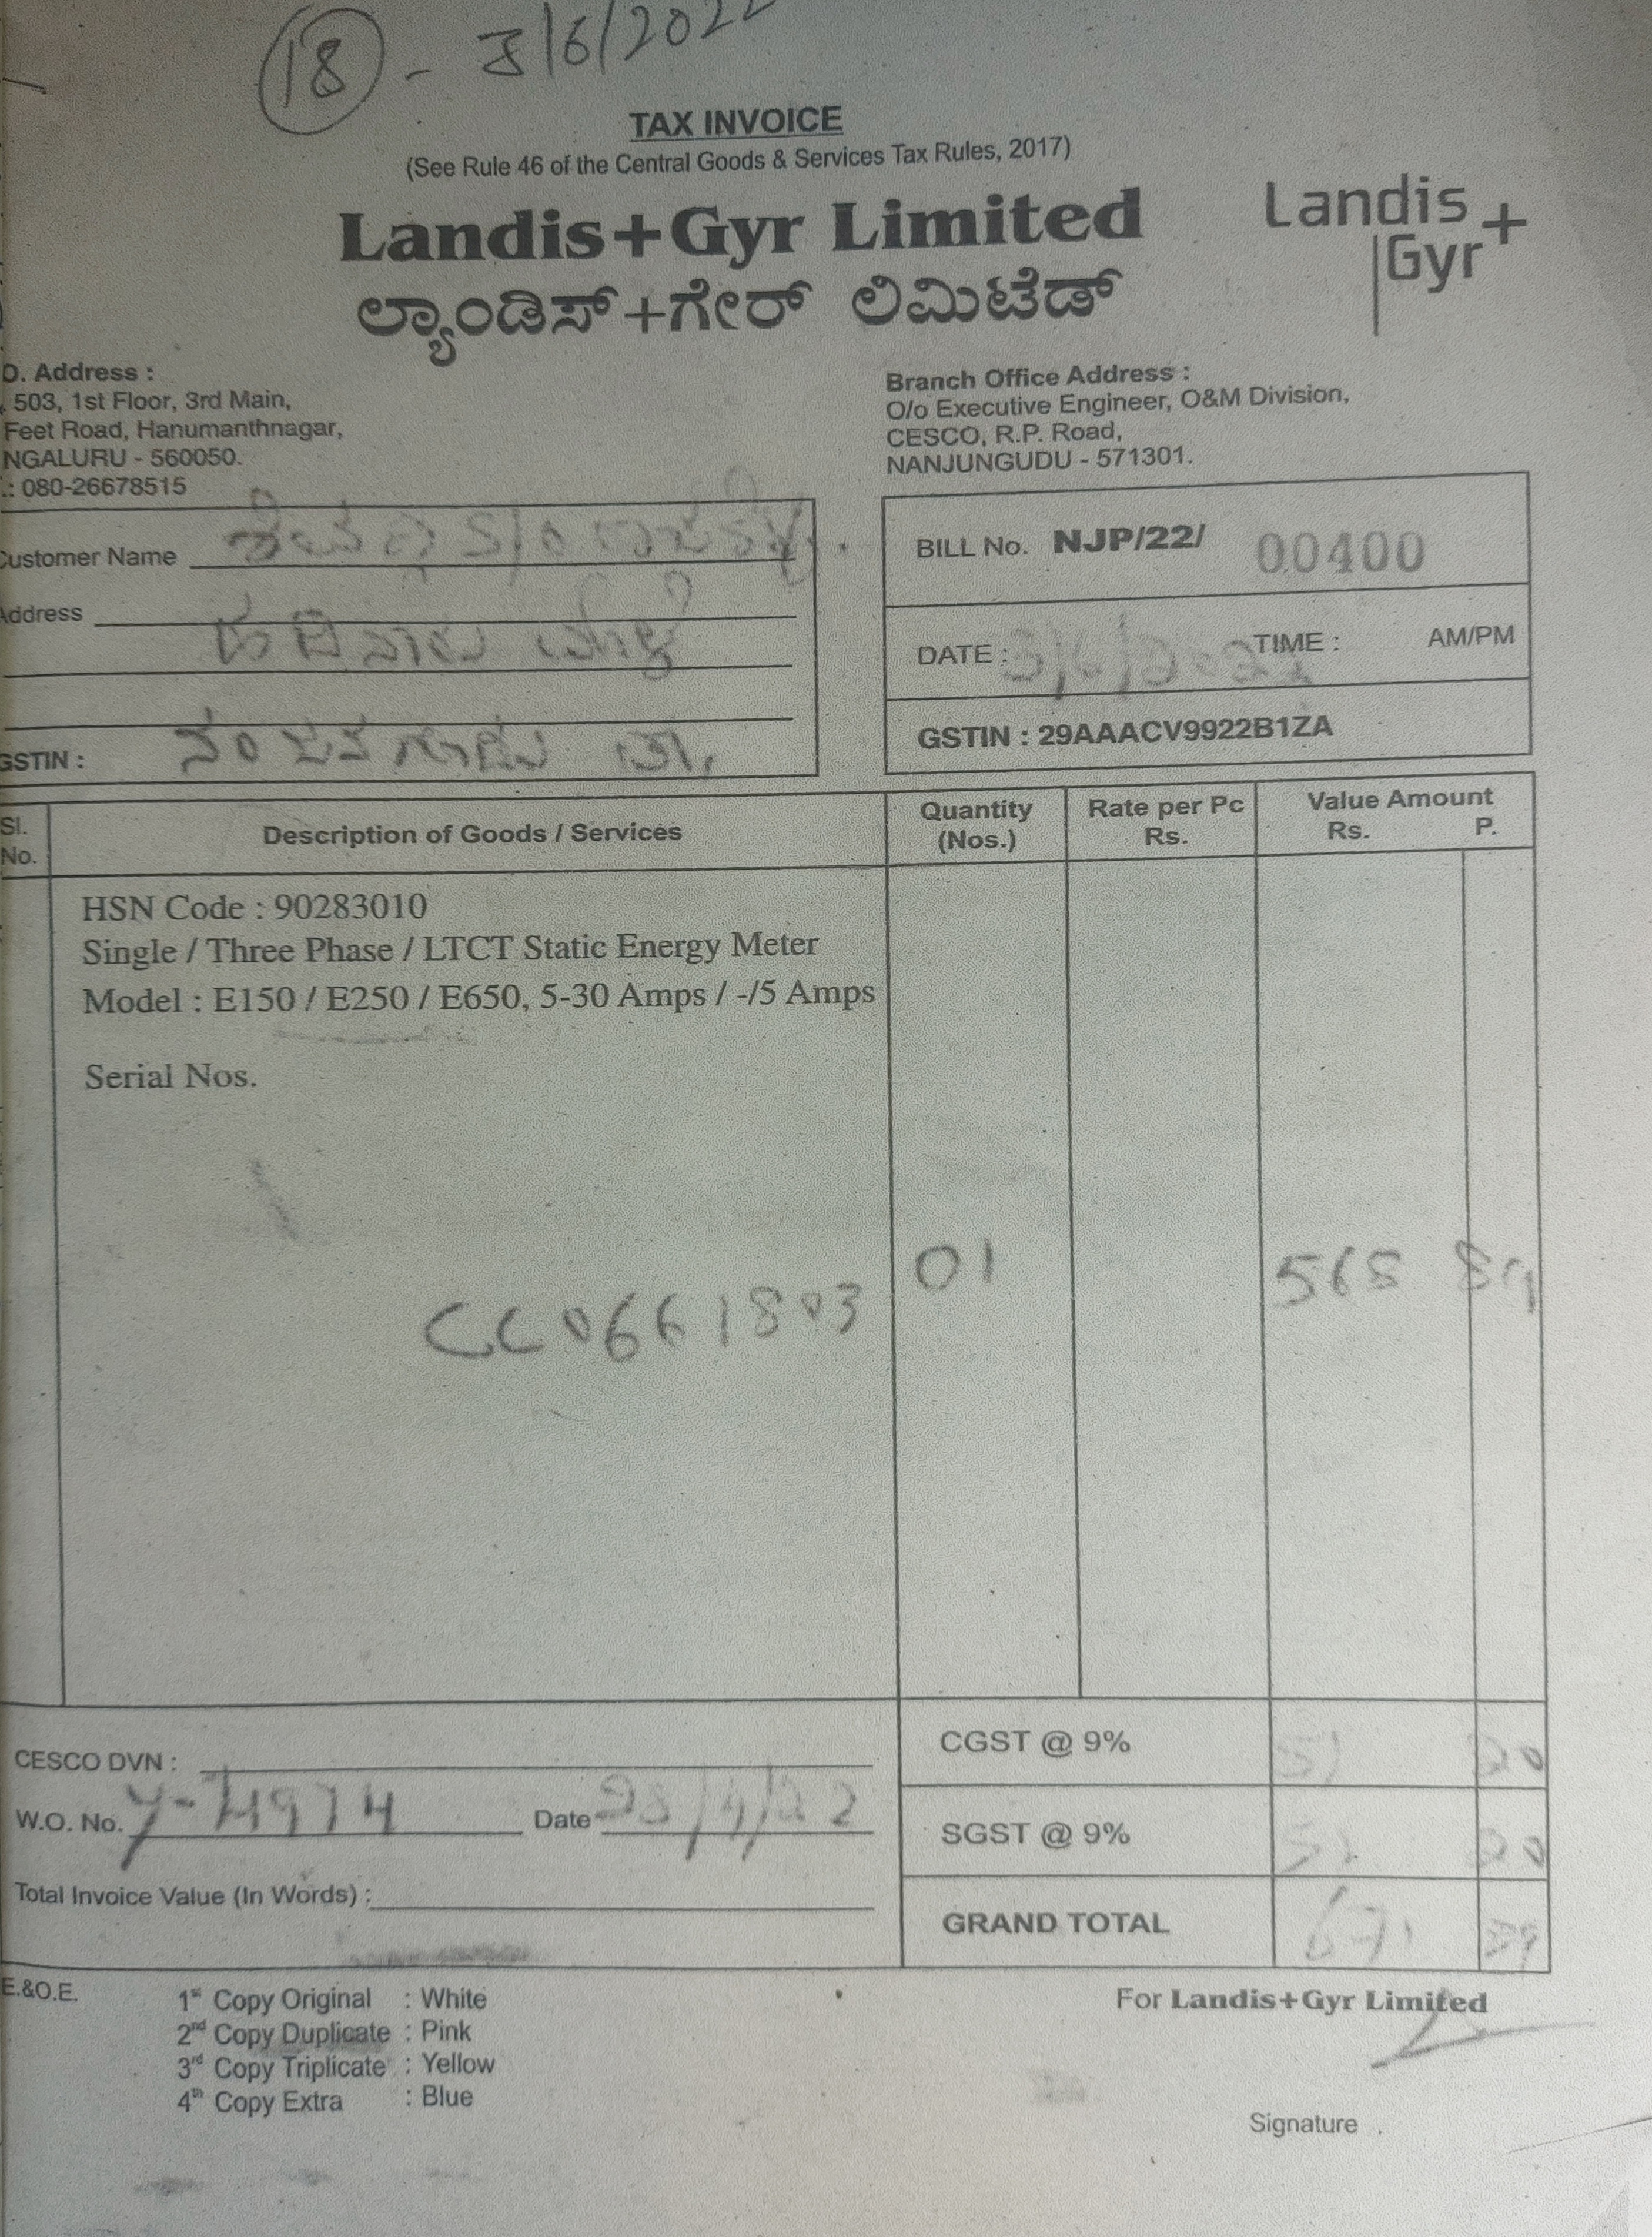 18 - 3/6/2022
TAX INVOICE
(See Rule 46 of the Central Goods & Services Tax Rules, 2017)
Landis+Gyr Limited
Landis+
Gyr
ಲ್ಯಾಂಡಿಸ್+ಗೇರ್ ಲಿಮಿಟೆಡ್
D. Address :
503, 1st Floor, 3rd Main,
Feet Road, Hanumanthnagar,
NGALURU - 560050.
.: 080-26678515
Branch Office Address :
O/o Executive Engineer, O&M Division,
CESCO, R.P. Road,
NANJUNGUDU - 571301.
Customer Name
Address
GSTIN :
BILL No. NJP/22/ 00400
DATE : 3/6/2022 TIME : AM/PM
GSTIN : 29AAACV9922B1ZA
Sl. No. Description of Goods / Services Quantity (Nos.) Rate per Pc Rs. Value Amount Rs. P.
HSN Code : 90283010
Single / Three Phase / LTCT Static Energy Meter
Model : E150 / E250 / E650, 5-30 Amps / -/5 Amps
Serial Nos.
CC0661803 01 568
CESCO DVN :
W.O. No. Date
Total Invoice Value (In Words) :
CGST @ 9% 51 20
SGST @ 9% 51 20
GRAND TOTAL 671
E.&O.E.
1st Copy Original : White
2nd Copy Duplicate : Pink
3rd Copy Triplicate : Yellow
4th Copy Extra : Blue
For Landis+Gyr Limited
Signature